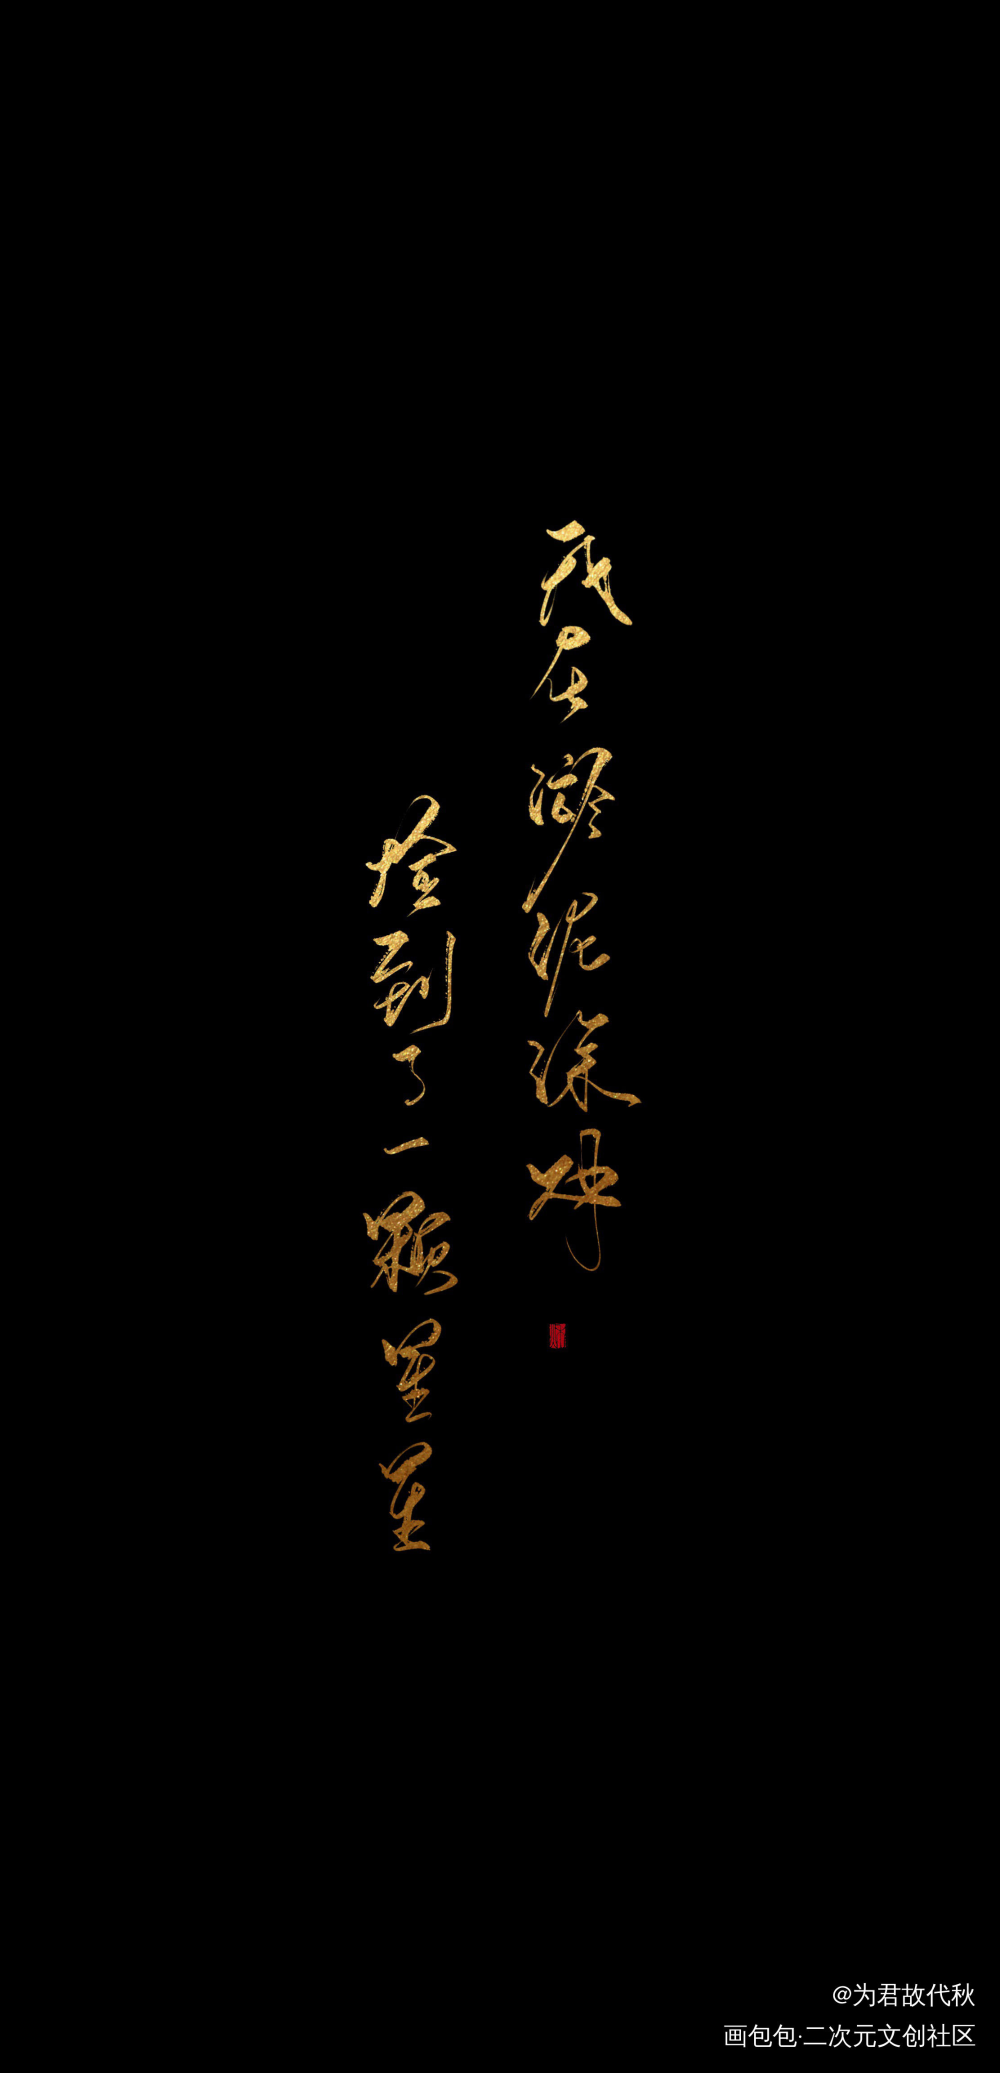 我在淤泥深处
捡到了一颗星星
@为君故代秋
画包包·二次元文创社区